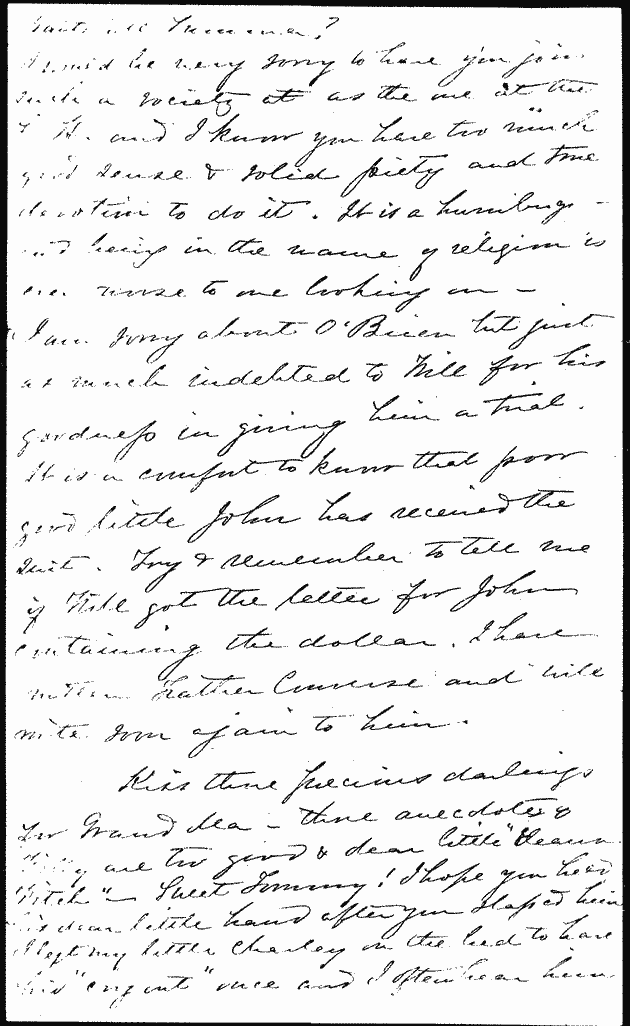 Summer?
would be very sorry to have you join
such a society at as the one at the
H. and I know you have too much
good sense & solid piety and true
devotion to do it. It is a humbug -
and being in the name of religion is
worse to one looking on -
I am sorry about O'Brien but just
as much indebted to Will for his
goodness in giving him a trial.
It is a comfort to know that poor
good little John has received the
suit. Try & remember to tell me
if Will got the letter for John
containing the dollar. I have
written Father Converse and will
write soon again to him.
Kiss those precious darlings
for Grand Ma - those anecdotes &
are too good & dear little
Sweet Tommy! I hope you
his dear little hand after you slaped him
I left my little Charley on the bed to have
his "cry out" once and I often hear him